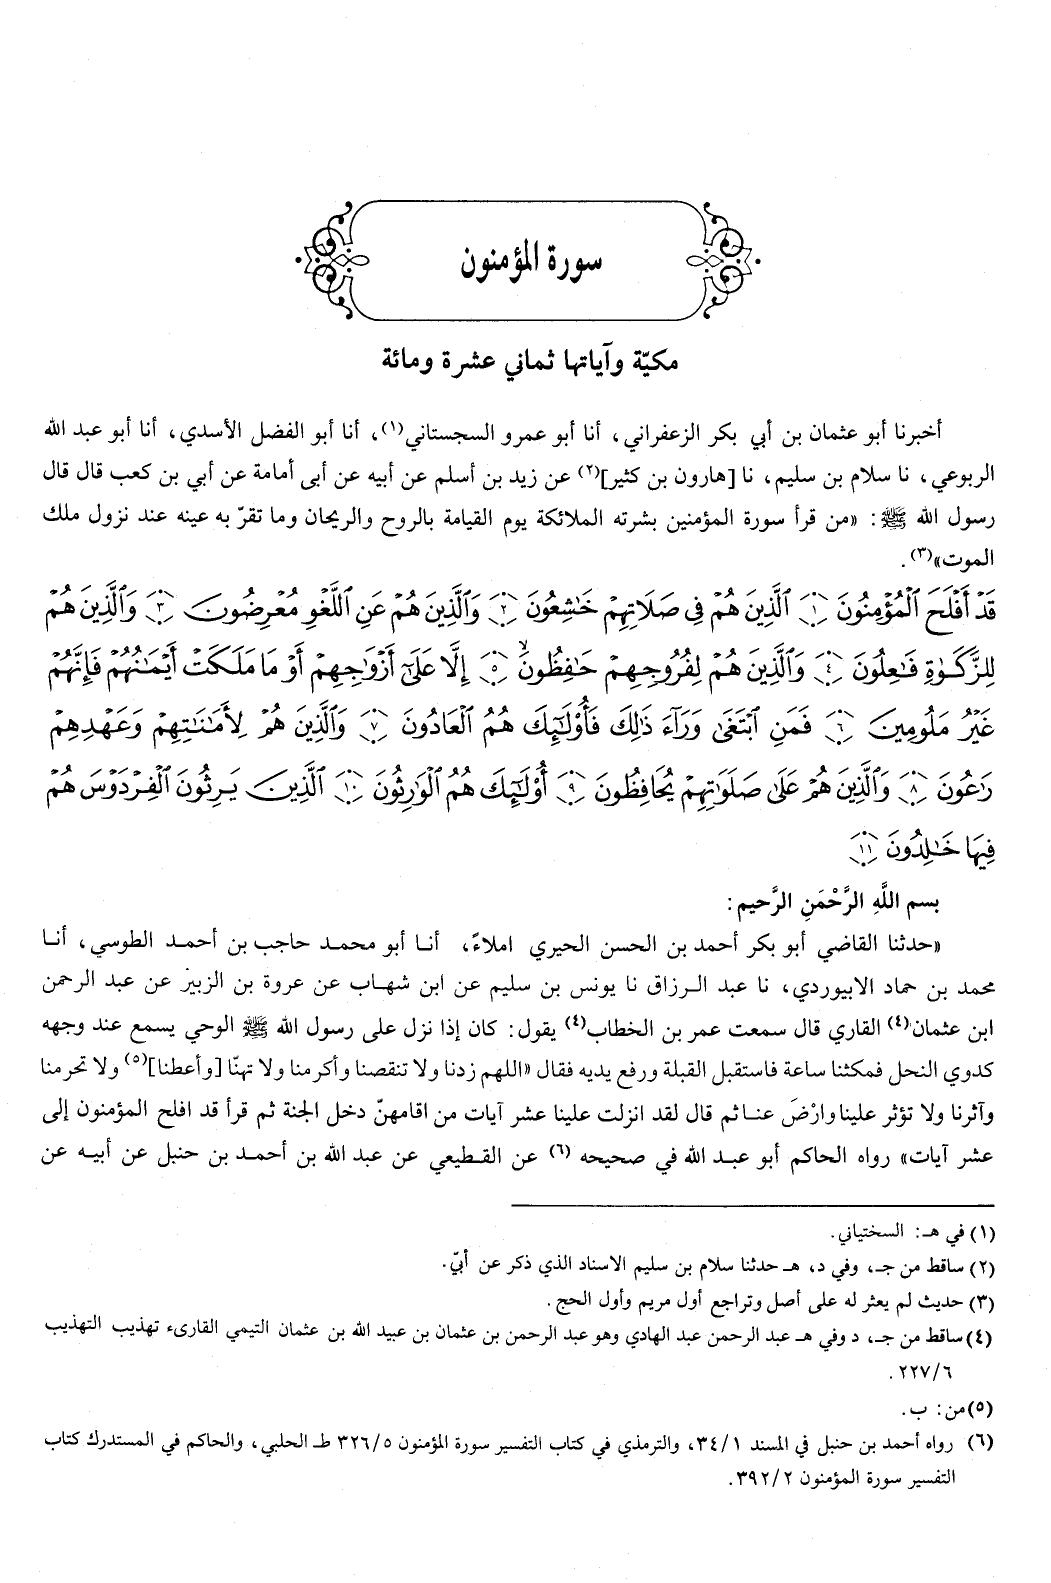 سورة المؤمنون
مكيّة وآياتها ثماني عشرة ومائة
أخبرنا أبو عثمان بن أبي بكر الزعفراني، أنا أبو عمرو السجستاني(١)، أنا أبو الفضل الأسدي، أنا أبو عبد الله
الربوعي، نا سلام بن سليم، نا [هارون بن كثير](٢) عن زيد بن أسلم عن أبيه عن أبى أمامة عن أبي بن كعب قال قال
رسول الله ﷺ: «من قرأ سورة المؤمنين بشرته الملائكة يوم القيامة بالروح والريحان وما تقرّ به عينه عند نزول ملك
الموت»(٣).
قَدْ أَفْلَحَ ٱلْمُؤْمِنُونَ ﴿١﴾ ٱلَّذِينَ هُمْ فِى صَلَاتِهِمْ خَٰشِعُونَ ﴿٢﴾ وَٱلَّذِينَ هُمْ عَنِ ٱللَّغْوِ مُعْرِضُونَ ﴿٣﴾ وَٱلَّذِينَ هُمْ
لِلزَّكَوٰةِ فَٰعِلُونَ ﴿٤﴾ وَٱلَّذِينَ هُمْ لِفُرُوجِهِمْ حَٰفِظُونَ ﴿٥﴾ إِلَّا عَلَىٰٓ أَزْوَٰجِهِمْ أَوْ مَا مَلَكَتْ أَيْمَٰنُهُمْ فَإِنَّهُمْ
غَيْرُ مَلُومِينَ ﴿٦﴾ فَمَنِ ٱبْتَغَىٰ وَرَآءَ ذَٰلِكَ فَأُو۟لَٰٓئِكَ هُمُ ٱلْعَادُونَ ﴿٧﴾ وَٱلَّذِينَ هُمْ لِأَمَٰنَٰتِهِمْ وَعَهْدِهِمْ
رَٰعُونَ ﴿٨﴾ وَٱلَّذِينَ هُمْ عَلَىٰ صَلَوَٰتِهِمْ يُحَافِظُونَ ﴿٩﴾ أُو۟لَٰٓئِكَ هُمُ ٱلْوَٰرِثُونَ ﴿١٠﴾ ٱلَّذِينَ يَرِثُونَ ٱلْفِرْدَوْسَ هُمْ
فِيهَا خَٰلِدُونَ ﴿١١﴾
بسم اللَّهِ الرَّحْمَنِ الرَّحيم:
«حدثنا القاضي أبو بكر أحمد بن الحسن الحيري املاءً، أنا أبو محمد حاجب بن أحمد الطوسي، أنا
محمد بن حماد الابيوردي، نا عبد الرزاق نا يونس بن سليم عن ابن شهاب عن عروة بن الزبير عن عبد الرحمن
ابن عثمان(٤) القاري قال سمعت عمر بن الخطاب(٤) يقول: كان إذا نزل على رسول الله ﷺ الوحي يسمع عند وجهه
كدوي النحل فمكثنا ساعة فاستقبل القبلة ورفع يديه فقال «اللهم زدنا ولا تنقصنا وأكرمنا ولا تهنّا [وأعطنا](٥) ولا تحرمنا
وآثرنا ولا تؤثر علينا وارْضَ عنا ثم قال لقد انزلت علينا عشر آيات من اقامهنّ دخل الجنة ثم قرأ قد افلح المؤمنون إلى
عشر آيات» رواه الحاكم أبو عبد الله في صحيحه (٦) عن القطيعي عن عبد الله بن أحمد بن حنبل عن أبيه عن
(١) في هـ: السختياني.
(٢) ساقط من جـ، وفي د، هـ حدثنا سلام بن سليم الاسناد الذي ذكر عن أبيّ.
(٣) حديث لم يعثر له على أصل وتراجع أول مريم وأول الحج.
(٤) ساقط من جـ، د وفي هـ عبد الرحمن عبد الهادي وهو عبد الرحمن بن عثمان بن عبيد الله بن عثمان التيمي القارىء تهذيب التهذيب
٦/٢٢٧.
(٥) من: ب.
(٦) رواه أحمد بن حنبل في المسند ١/٣٤، والترمذي في كتاب التفسير سورة المؤمنون ٥/٣٢٦ طـ الحلبي، والحاكم في المستدرك كتاب
التفسير سورة المؤمنون ٢/٣٩٢.